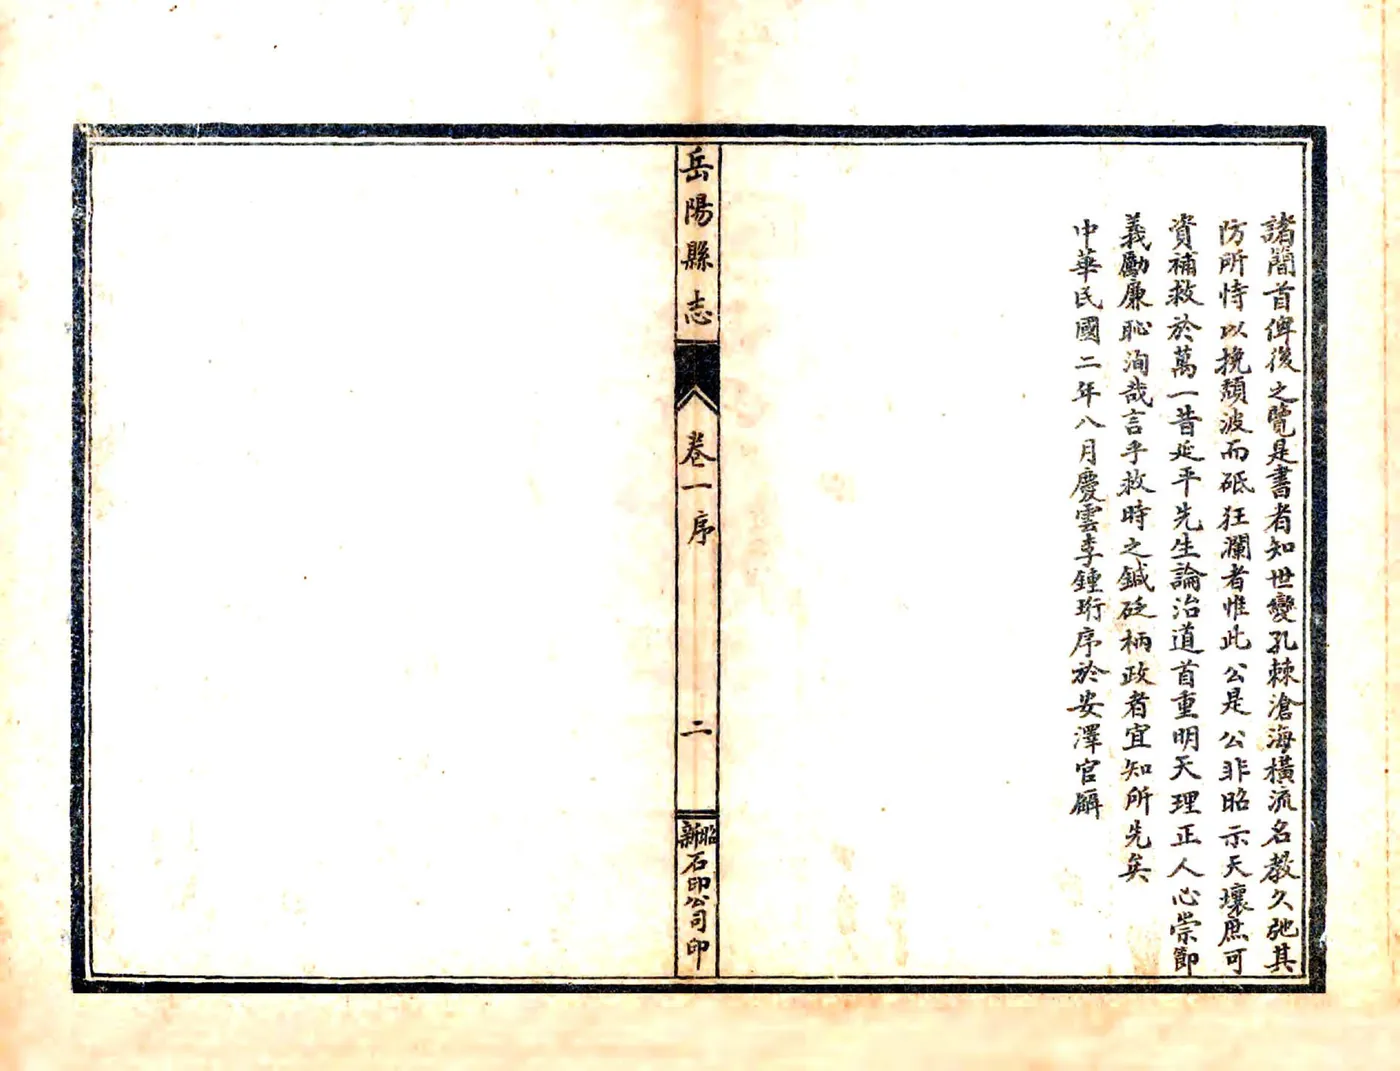 諸簡首俾後之覽是書者知世變孔棘滄海橫流名教久弛其
防所恃以挽頹波而砥狂瀾者惟此公是公非昭示天壤庶可
資補救於萬一昔延平先生論治道首重明天理正人心崇節
義勵廉恥洵哉言乎救時之鍼砭柄政者宜知所先矣
中華民國二年八月慶雲李鍾珩序於安澤官廨
岳陽縣志
卷一序
二
昭新石印公司印